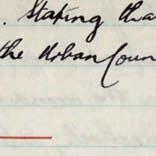 . Stating tha
the Urban Coun